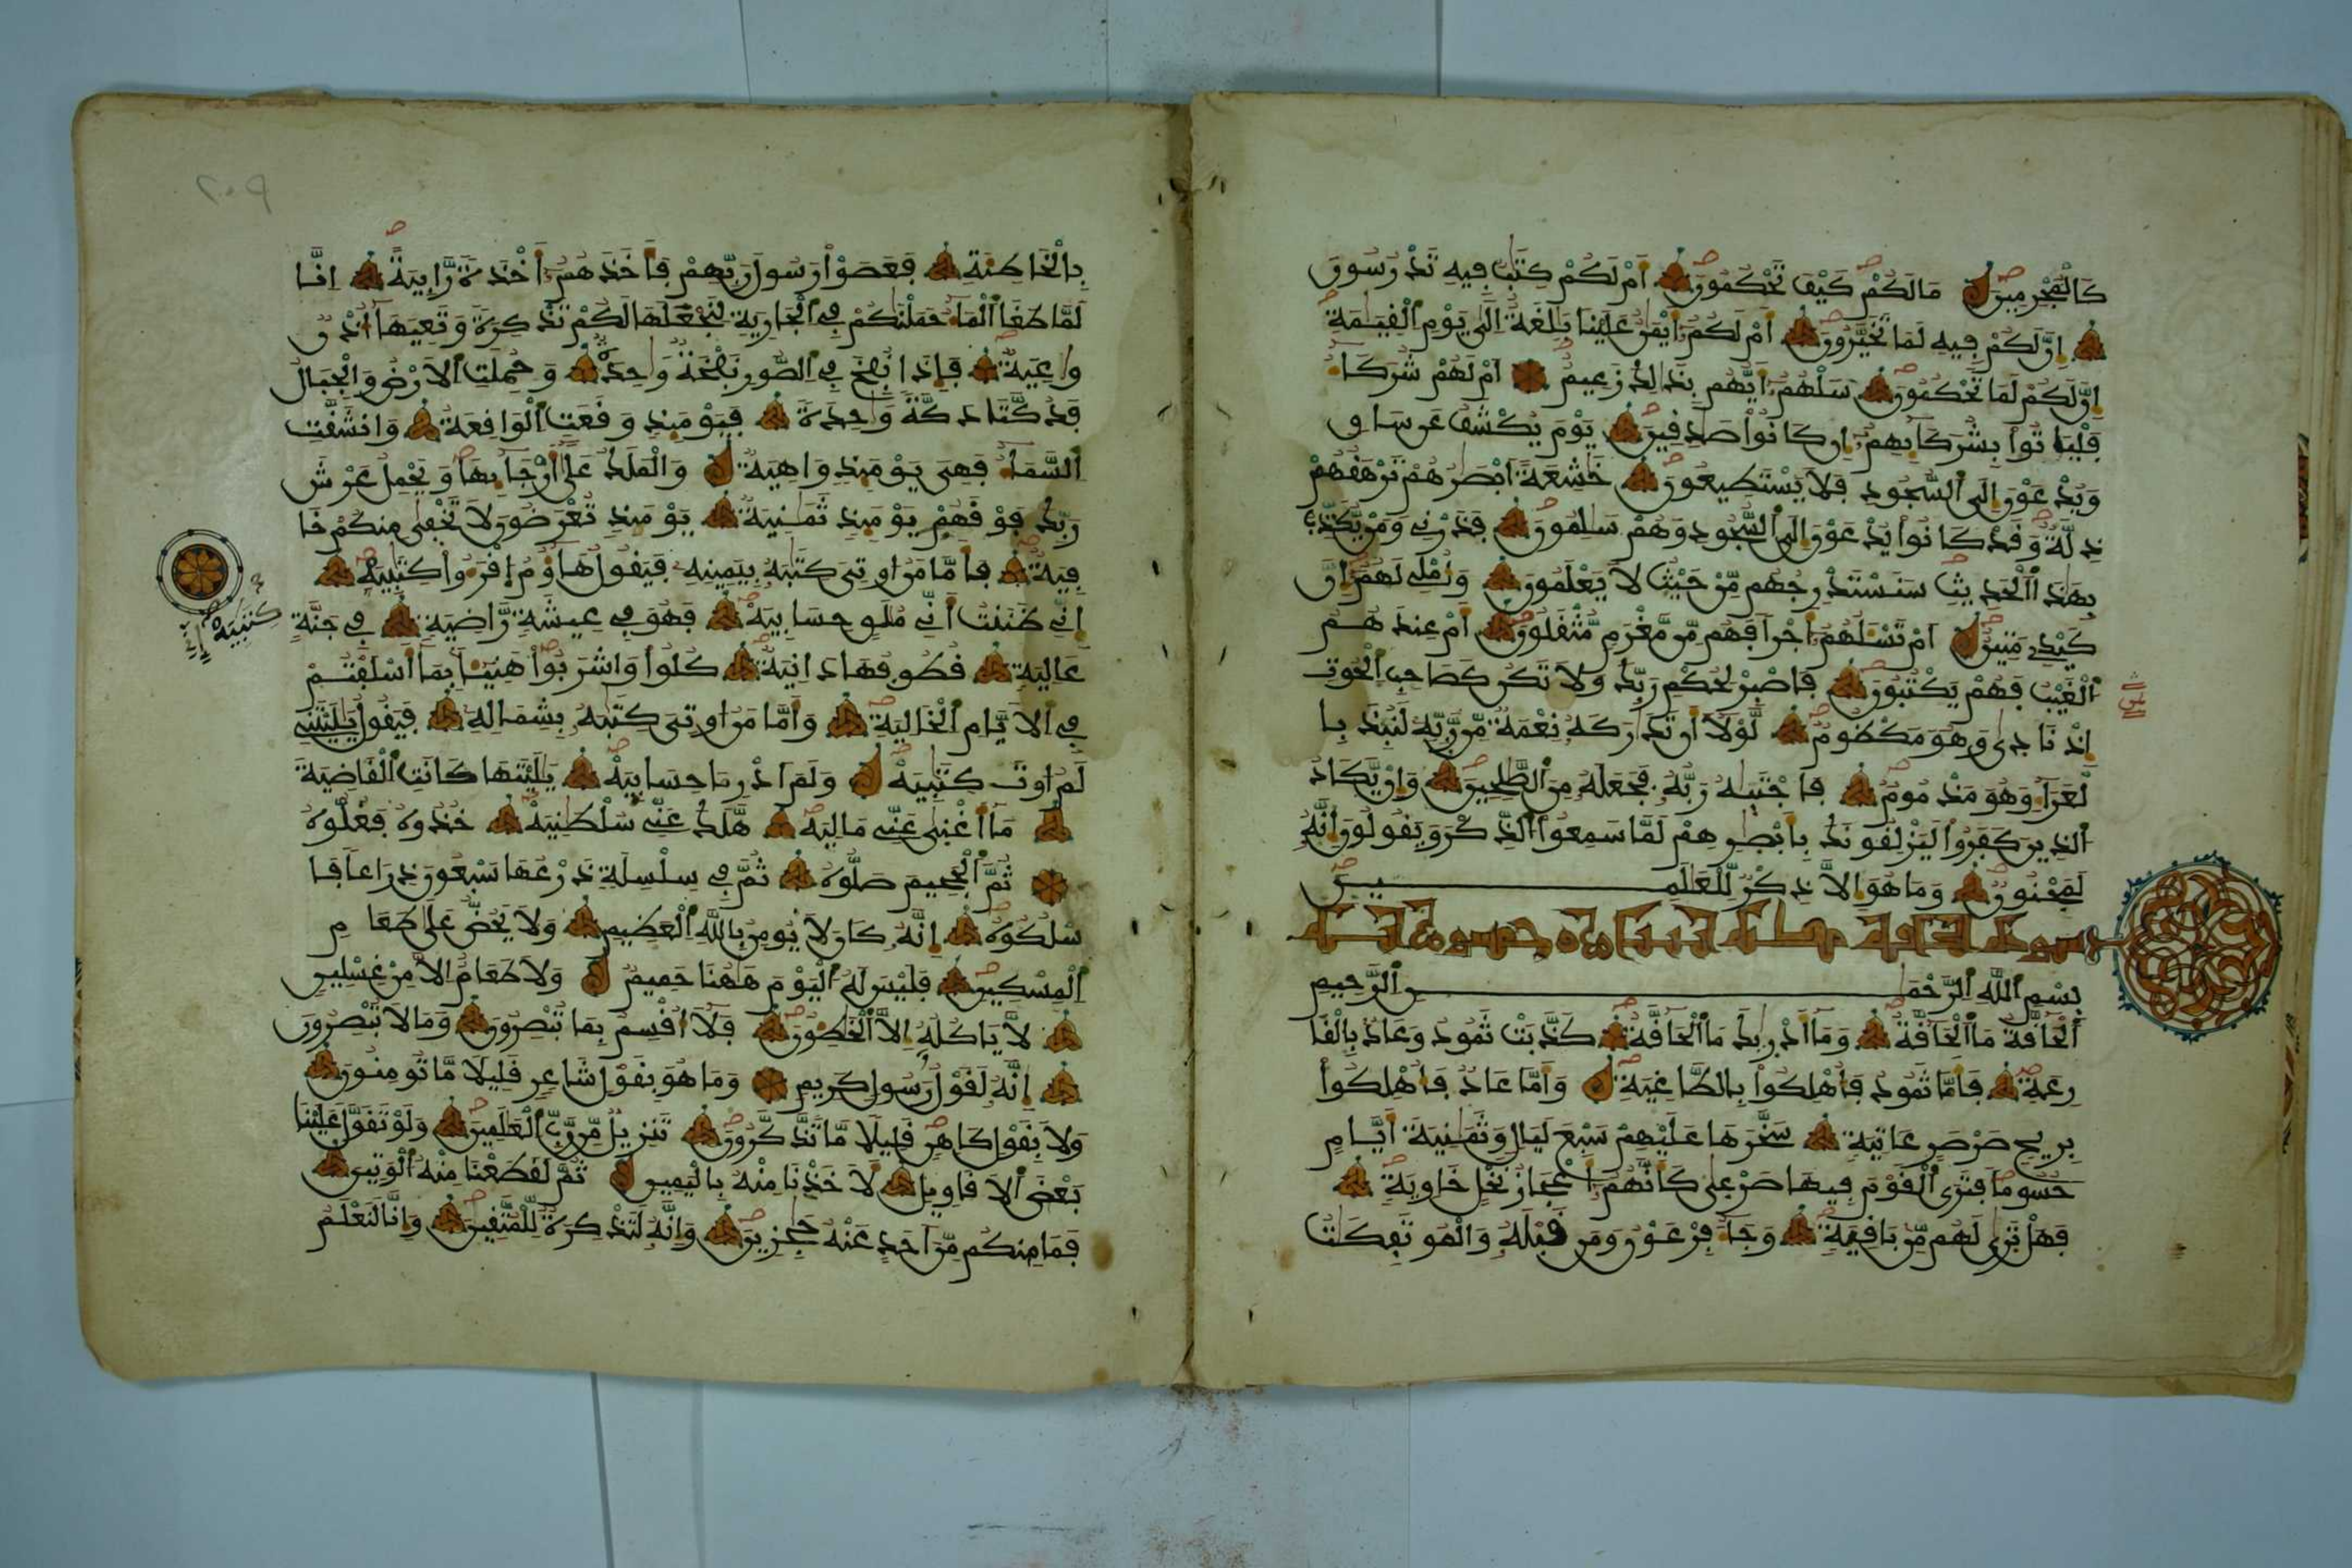 كَالْمُجْرِمِينَ مَا لَكُمْ كَيْفَ تَحْكُمُونَ أَمْ لَكُمْ كِتَٰبٌ فِيهِ تَدْرُسُونَ
إِنَّ لَكُمْ فِيهِ لَمَا تَخَيَّرُونَ أَمْ لَكُمُ أَيْمَٰنٌ عَلَيْنَا بَٰلِغَةٌ إِلَىٰ يَوْمِ الْقِيَٰمَةِ
إِنَّ لَكُمْ لَمَا تَحْكُمُونَ سَلْهُمُ أَيُّهُم بِذَٰلِكَ زَعِيمٌ أَمْ لَهُمْ شُرَكَاءُ
فَلْيَاتُواْ بِشُرَكَائِهِمُ إِن كَانُواْ صَٰدِقِينَ يَوْمَ يُكْشَفُ عَن سَاقٍ
وَيُدْعَوْنَ إِلَى السُّجُودِ فَلَا يَسْتَطِيعُونَ خَٰشِعَةً أَبْصَٰرُهُمْ تَرْهَقُهُمْ
ذِلَّةٌ وَقَدْ كَانُواْ يُدْعَوْنَ إِلَى السُّجُودِ وَهُمْ سَٰلِمُونَ فَذَرْنِي وَمَنْ يُّكَذِّبُ
بِهَٰذَا الْحَدِيثِ سَنَسْتَدْرِجُهُم مِّنْ حَيْثُ لَا يَعْلَمُونَ وَأُمْلِي لَهُمُ إِنَّ
كَيْدِي مَتِينٌ أَمْ تَسْـَٔلُهُمُ أَجْرًا فَهُم مِّن مَّغْرَمٍ مُّثْقَلُونَ أَمْ عِندَهُمُ
الْغَيْبُ فَهُمْ يَكْتُبُونَ فَاصْبِرْ لِحُكْمِ رَبِّكَ وَلَا تَكُن كَصَاحِبِ الْحُوتِ
إِذْ نَادَىٰ وَهُوَ مَكْظُومٌ لَّوْلَا أَن تَدَٰرَكَهُ نِعْمَةٌ مِّن رَّبِّهِ لَنُبِذَ بِا
لْعَرَاءِ وَهُوَ مَذْمُومٌ فَاجْتَبَٰهُ رَبُّهُ فَجَعَلَهُ مِنَ الصَّٰلِحِينَ وَإِنْ يَّكَادُ
الَّذِينَ كَفَرُواْ لَيَزْلِقُونَكَ بِأَبْصَٰرِهِمْ لَمَّا سَمِعُواْ الذِّكْرَ وَيَقُولُونَ إِنَّهُ
لَمَجْنُونٌ وَمَا هُوَ إِلَّا ذِكْرٌ لِّلْعَٰلَمِينَ
سورة الحاقة مكية
بِسْمِ اللَّهِ الرَّحْمَٰنِ الرَّحِيمِ
الْحَاقَّةُ مَا الْحَاقَّةُ وَمَا أَدْرَىٰكَ مَا الْحَاقَّةُ كَذَّبَتْ ثَمُودُ وَعَادٌ بِالْقَا
رِعَةِ فَأَمَّا ثَمُودُ فَأُهْلِكُواْ بِالطَّاغِيَةِ وَأَمَّا عَادٌ فَأُهْلِكُواْ
بِرِيحٍ صَرْصَرٍ عَاتِيَةٍ سَخَّرَهَا عَلَيْهِمْ سَبْعَ لَيَالٍ وَثَمَٰنِيَةَ أَيَّامٍ
حُسُومًا فَتَرَى الْقَوْمَ فِيهَا صَرْعَىٰ كَأَنَّهُمُ أَعْجَازُ نَخْلٍ خَاوِيَةٍ
فَهَلْ تَرَىٰ لَهُم مِّن بَاقِيَةٍ وَجَاءَ فِرْعَوْنُ وَمَن قَبْلَهُ وَالْمُوتَفِكَٰتُ
بِالْخَاطِئَةِ فَعَصَوْاْ رَسُولَ رَبِّهِمْ فَأَخَذَهُمُ أَخْذَةً رَّابِيَةً إِنَّا
لَمَّا طَغَا الْمَاءُ حَمَلْنَٰكُمْ فِي الْجَارِيَةِ لِنَجْعَلَهَا لَكُمْ تَذْكِرَةً وَتَعِيَهَا أُذْنٌ
وَٰعِيَةٌ فَإِذَا نُفِخَ فِي الصُّورِ نَفْخَةٌ وَٰحِدَةٌ وَحُمِلَتِ الْأَرْضُ وَالْجِبَالُ
فَدُكَّتَا دَكَّةً وَٰحِدَةً فَيَوْمَئِذٍ وَقَعَتِ الْوَاقِعَةُ وَانشَقَّتِ
السَّمَاءُ فَهِيَ يَوْمَئِذٍ وَاهِيَةٌ وَالْمَلَكُ عَلَىٰ أَرْجَائِهَا وَيَحْمِلُ عَرْشَ
رَبِّكَ فَوْقَهُمْ يَوْمَئِذٍ ثَمَٰنِيَةٌ يَوْمَئِذٍ تُعْرَضُونَ لَا تَخْفَىٰ مِنكُمْ خَا
فِيَةٌ فَأَمَّا مَنُ أُوتِيَ كِتَٰبَهُ بِيَمِينِهِ فَيَقُولُ هَاؤُمُ اقْرَءُواْ كِتَٰبِيَهْ
إِنِّي ظَنَنتُ أَنِّي مُلَٰقٍ حِسَابِيَهْ فَهُوَ فِي عِيشَةٍ رَّاضِيَةٍ فِي جَنَّةٍ
عَالِيَةٍ قُطُوفُهَا دَانِيَةٌ كُلُواْ وَاشْرَبُواْ هَنِيـًٔا بِمَا أَسْلَفْتُمْ
فِي الْأَيَّامِ الْخَالِيَةِ وَأَمَّا مَنُ أُوتِيَ كِتَٰبَهُ بِشِمَالِهِ فَيَقُولُ يَٰلَيْتَنِي
لَمُ أُوتَ كِتَٰبِيَهْ وَلَمَ أَدْرِ مَا حِسَابِيَهْ يَٰلَيْتَهَا كَانَتِ الْقَاضِيَةَ
مَا أَغْنَىٰ عَنِّي مَالِيَهْ هَّلَكَ عَنِّي سُلْطَٰنِيَهْ خُذُوهُ فَغُلُّوهُ
ثُمَّ الْجَحِيمَ صَلُّوهُ ثُمَّ فِي سِلْسِلَةٍ ذَرْعُهَا سَبْعُونَ ذِرَاعًا فَا
سْلُكُوهُ إِنَّهُ كَانَ لَا يُومِنُ بِاللَّهِ الْعَظِيمِ وَلَا يَحُضُّ عَلَىٰ طَعَامِ
الْمِسْكِينِ فَلَيْسَ لَهُ الْيَوْمَ هَٰهُنَا حَمِيمٌ وَلَا طَعَامٌ إِلَّا مِنْ غِسْلِينٍ
لَّا يَاكُلُهُ إِلَّا الْخَٰطِـُٔونَ فَلَا أُقْسِمُ بِمَا تُبْصِرُونَ وَمَا لَا تُبْصِرُونَ
إِنَّهُ لَقَوْلُ رَسُولٍ كَرِيمٍ وَمَا هُوَ بِقَوْلِ شَاعِرٍ قَلِيلًا مَّا تُومِنُونَ
وَلَا بِقَوْلِ كَاهِنٍ قَلِيلًا مَّا تَذَّكَّرُونَ تَنزِيلٌ مِّن رَّبِّ الْعَٰلَمِينَ وَلَوْ تَقَوَّلَ عَلَيْنَا
بَعْضَ الْأَقَاوِيلِ لَأَخَذْنَا مِنْهُ بِالْيَمِينِ ثُمَّ لَقَطَعْنَا مِنْهُ الْوَتِينَ
فَمَا مِنكُم مِّنَ أَحَدٍ عَنْهُ حَٰجِزِينَ وَإِنَّهُ لَتَذْكِرَةٌ لِّلْمُتَّقِينَ وَإِنَّا لَنَعْلَمُ
كِتَٰبِيَهْ إِنِّي
٢٠٩